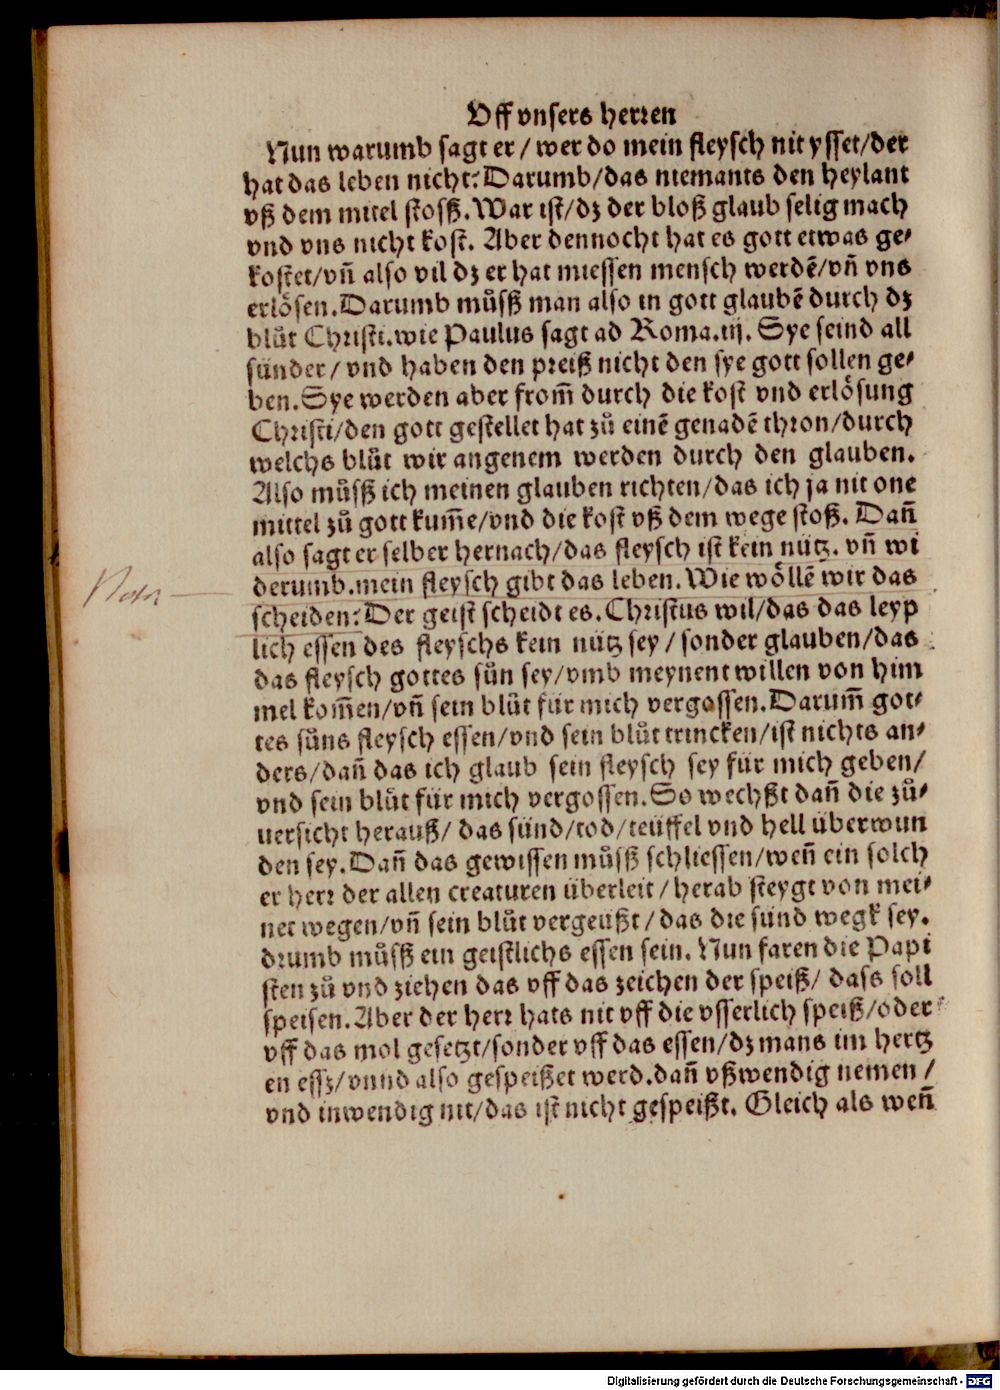 Vff vnsers herren
Nun warumb sagt er / wer do mein fleysch nit ysset/der
hat das leben nicht: Darumb/das niemants den heylant
vß dem mitel stosß. War ist/dz der bloß glaub selig mach
vnd vns nicht kost. Aber dennocht hat es gott etwas ge⸗
kostet/vñ also vil dz er hat miessen mensch werdē/vñ vns
erlösen. Darumb můsß man also in gott glaubē durch dz
blůt Christi.wie Paulus sagt ad Roma.iij. Sye seind all
sünder / vnd haben den preiß nicht den sye gott sollen ge⸗
ben. Sye werden aber from̃ durch die kost vnd erlösung
Christi/den gott gestellet hat zů einē genadē thron/durch
welchs blůt wir angenem werden durch den glauben.
Also můsß ich meinen glauben richten/das ich ja nit one
mittel zů gott kum̃e/vnd die kost vß dem wege stoß. Dañ
also sagt er selber hernach/das fleysch ist kein nütz. vñ wi
derumb.mein fleysch gibt das leben. Wie wöllē wir das
Nota
scheiden: Der geist scheidt es. Christus wil/das das leyp
lich essen des fleyschs kein nütz sey / sonder glauben/das
das fleysch gottes sůn sey/vmb meynent willen von him
mel kom̃en/vñ sein blůt für mich vergossen. Darum̃ got⸗
tes sůns fleysch essen/vnd sein blůt trincken/ist nichts an⸗
ders/dañ das ich glaub sein fleysch sey für mich geben/
vnd sein blůt für mich vergossen. So wechßt dañ die zů⸗
uersicht herauß/ das sünd/tod/teüffel vnd hell überwun
den sey. Dañ das gewissen můsß schliessen/weñ ein solch
er herr der allen creaturen überleit / herab steygt von mei⸗
net wegen/vñ sein blůt vergeüßt / das die sünd wegk sey.
drumb můsß ein geistlichs essen sein. Nun faren die Papi
sten zů vnd ziehen das vff das zeichen der speiß/ dass soll
speisen. Aber der herr hats nit vff die vsserlich speiß/oder
vff das mol gesetzt/sonder vff das essen/dz mans im hertz
en essz/vnnd also gespeißet werd.dañ vßwendig nemen /
vnd inwendig nit/das ist nicht gespeißt. Gleich als weñ
Digitalisierung gefördert durch die Deutsche Forschungsgemeinschaft - DFG